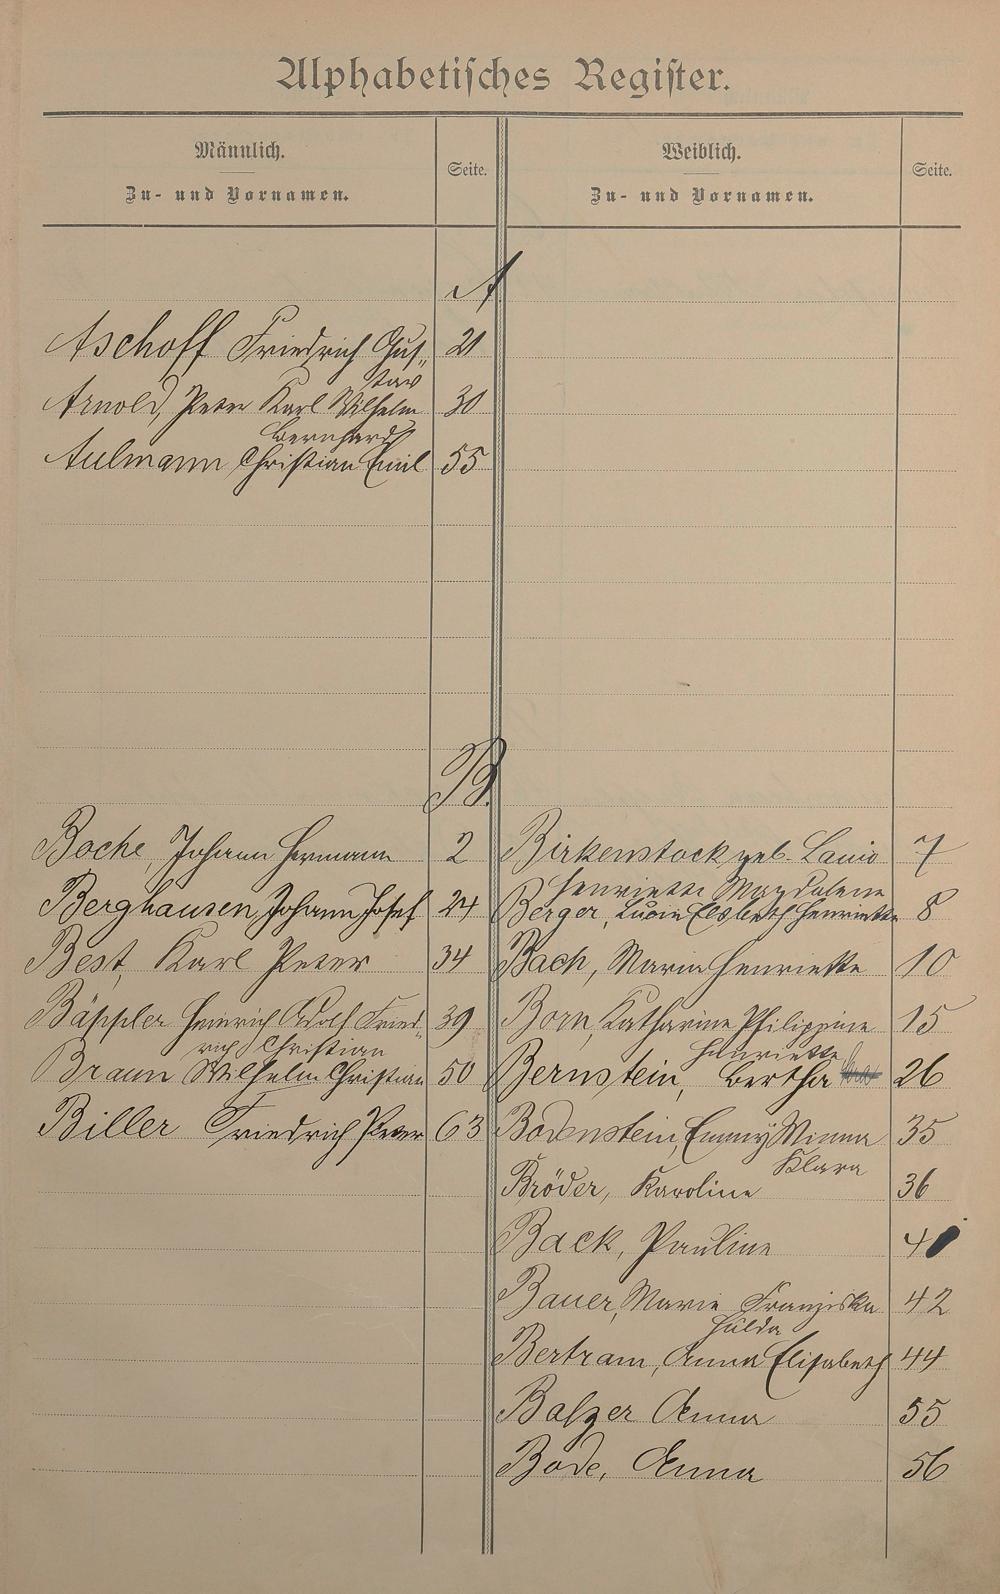 Alphabetisches Register.
Männlich. Seite. Weiblich. Seite.
Zu- und Vornamen. Zu- und Vornamen.
A
Aschoff Friedrich Gus- 21
tav
Arnold, Peter Karl Wilhelm 30
Bernhard
Aulmann Christian Emil 55
B.
Boche, Johann Hermann 2
Berghausen, Johann Josef 24
Best, Karl Peter 34
Bäppler Heinrich Adolf Fried- 39
rich Christian
Braun Wilhelm Christian 50
Biller Friedrich Peter 63
Birkenstock geb. 7
Henriette Magdalene
Berger, Elsbeth Henriette 8
Bach, Maria Henriette 10
Born, Katharine Philippine 15
Henriette
Bernstein, Bertha 26
Bodenstein, Emmy Minna 35
Klara
Bröder, Karoline 36
Back, Pauline
Bauer, Marie Franziska 42
Hulda
Bertram, Anna Elisabeth 44
Balzer Anna 55
Bode, Anna 56